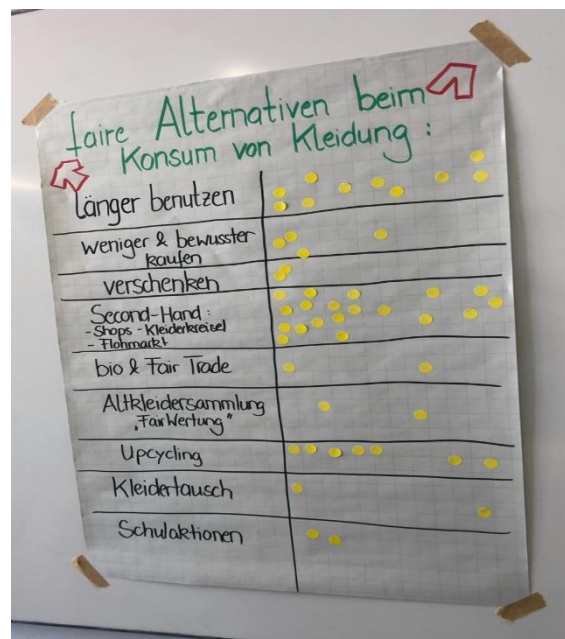 faire Alternativen beim
Konsum von Kleidung :
länger benutzen
weniger & bewusster
kaufen
verschenken
Second-Hand :
- Shops - Kleiderkreisel
- Flohmarkt
bio & Fair Trade
Altkleidersammlung
„FairWertung"
Upcycling
Kleidertausch
Schulaktionen